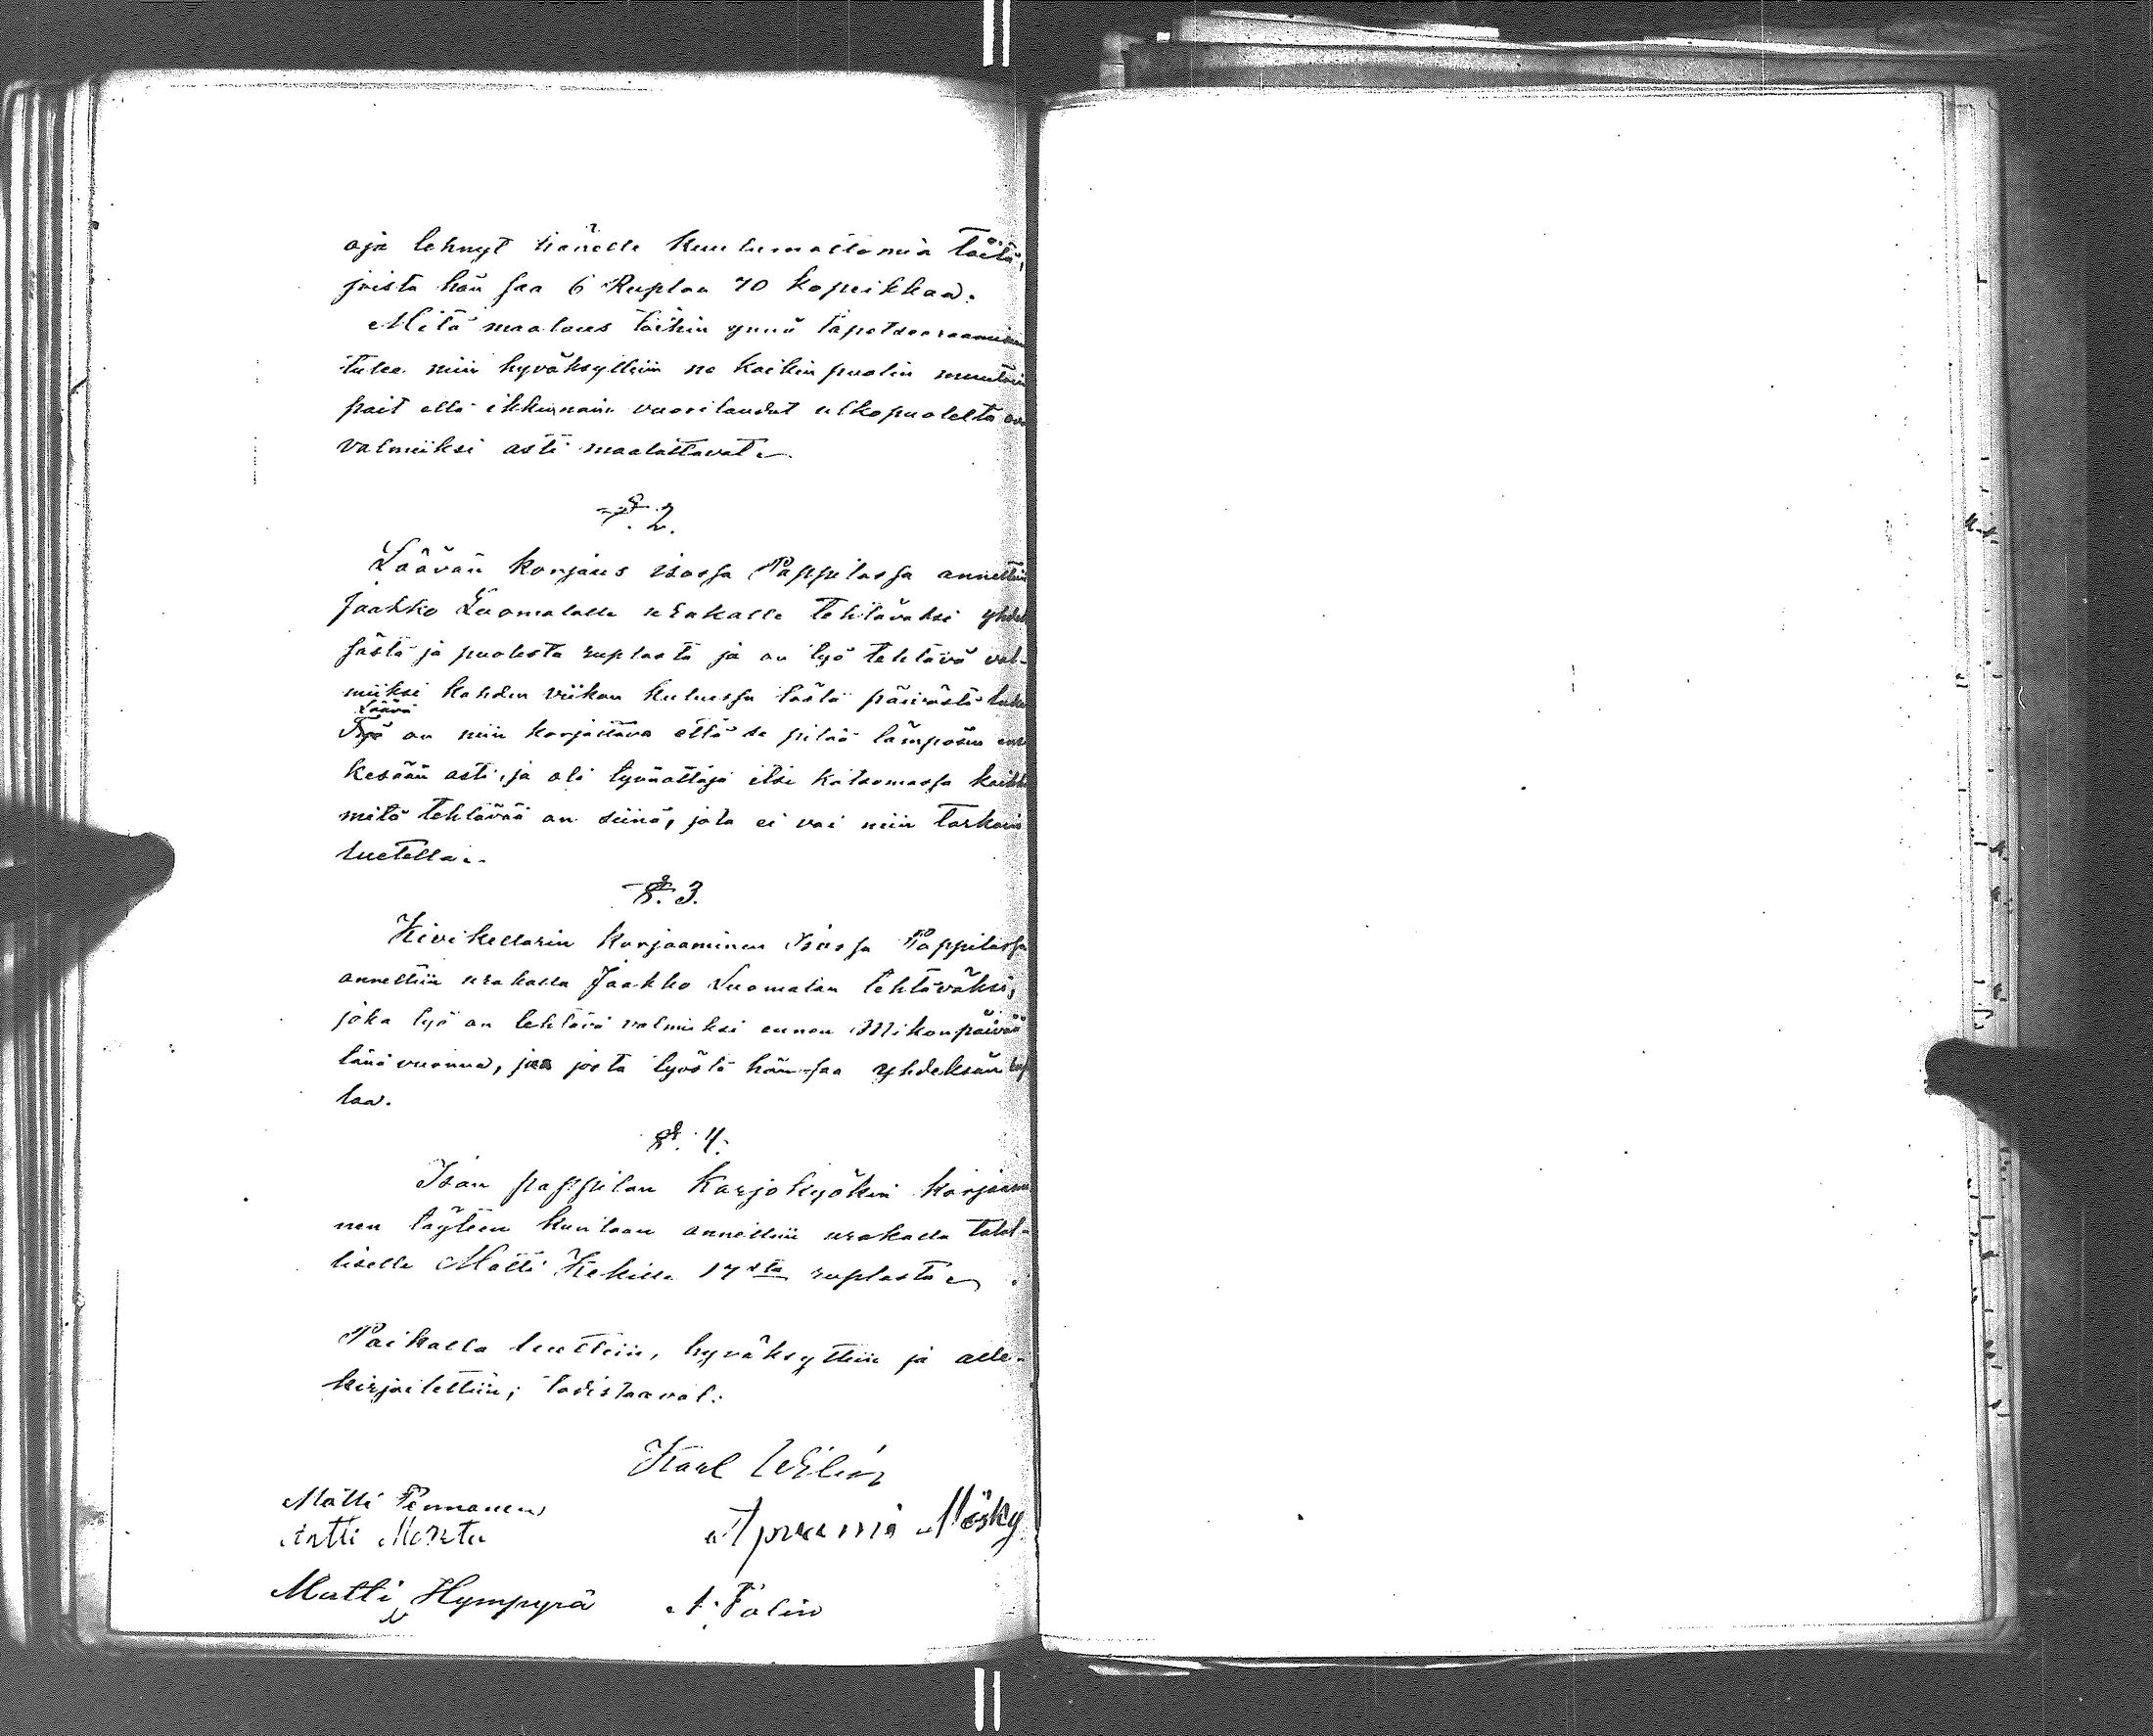 oja tehnyt hänelle kuulumattomia töitä,
joista hän saa 6 Ruplaa 70 kopeikkaa.
Mitä maalaus töihin ynnä
tulee niin hyväksyttiin ne kaikin puolin
pait että ikkunain vuorilaudat ulkopuolelta
valmiiksi asti maalattavat.
§. 2.
Läävän korjaus isossa Pappilassa annettiin
Jaakko Luomalalle urakalle tehtäväksi yhdek
sästä ja puolesta ruplasta ja on työ tehtävä val-
miiksi kahden viikon kuluessa tästä päivästä
Läävä
Työ on niin korjattava että se pitää lämpösen
kesään asti, ja oli työnottaja itse katsomassa
mitä tehtävää on siinä, jota ei voi niin tarkoin
luetella.
§. 3.
Kivikellarin korjaaminen Isossa Pappilassa
annettiin urakalla Jaakko Luomalan tehtäväksi,
joka työ on tehtävä valmiiksi ennen Mikonpäivää
tänä vuonna, jaa josta työstä hän saa yhdeksän rup
laa.
§. 4.
Ison pappilan Karjakyökin korjaami
nen täyteen kuntoon annettiin urakalla talol-
liselle Matti Kekille 17sta ruplasta.
Paikalla luettiin, hyväksyttiin ja alle-
kirjoitettiin; todistaavat:
Karl
Matti Pennanen
Antti
Matti Hympyrä